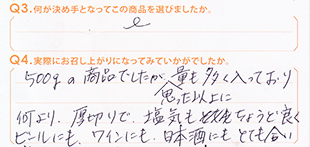 Q3.何が決め手となってこの商品を選びましたか。
Q4.実際にお召し上がりになってみていかがでしたか。
500gの商品でしたが、量も多く入っており
思った以上に
何より、厚切りで、塩気もちょうど良く
ビールにも、ワインにも、日本酒にもとても合い